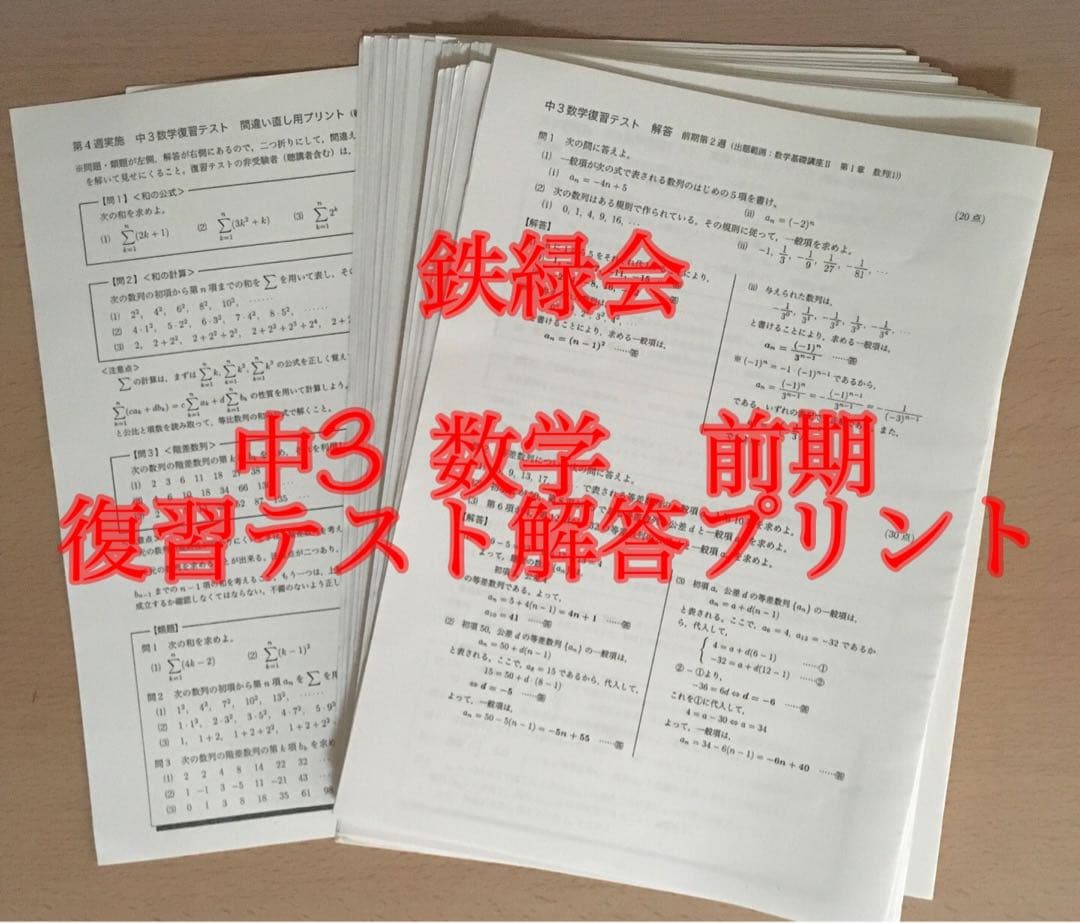 第4週実施 中3数学復習テスト 間違い直し用プリント
※問題・類題が左側、解答が右側にあるので、二つ折りにして、間違え
を解いて見せにくること。復習テストの非受験者（聴講者含む）は、
【問1】＜和の公式＞
次の和を求めよ。
(1) \sum_{k=1}^{n}(2k+1) (2) \sum_{k=1}^{n}(3k²+k) (3) \sum_{k=1}^{n}2^k
【問2】＜和の計算＞
次の数列の初項から第n項までの和を∑を用いて表し、その
(1) 2², 4², 6², 8², 10², ……
(2) 4・1², 5・2², 6・3², 7・4², 8・5², ……
(3) 2, 2+2², 2+2²+2³, 2+2²+2³+2⁴, 2+
＜注意点＞
∑の計算は、まずは \sum_{k=1}^{n}k, \sum_{k=1}^{n}k², \sum_{k=1}^{n}k³ の公式を正しく覚え
\sum_{k=1}^{n}(ca_k+db_k)=c\sum_{k=1}^{n}a_k+d\sum_{k=1}^{n}b_k の性質を用いて計算しよう。
と公比と項数を読み取って、等比数列の和
式で解くこと。
【問3】＜階差数列＞
次の数列の階差数列の第k
(1) 2 3 6 11 18
b_{n-1}までのn−1項の和を考えること。もう一つは、上
成立するか確認しなくてはならない。不備のないよう正し
【類題】
問1 次の和を求めよ。
(1) \sum_{k=1}^{n}(4k−2) (2) \sum_{k=1}^{n}(k−1)²
問2 次の数列の初項から第n項 a_n を∑を用
(1) 1³, 4³, 7³, 10³, 13³,
(2) 1・1², 2・3², 3・5², 4・7², 5・9²
(3) 1, 1+2, 1+2+2², 1+2+2²+
問3 次の数列の階差数列の第k項 b_k を求め
(1) 2 2 4 8 14 22 32
(2) 1 −1 3 −5 11 −21 43
(3) 0 1 3 8 18 35 61 98
中3数学復習テスト 解答 前期第2週（出題範囲：数学基礎講座Ⅱ 第1章 数列(1)）
(20点)
問1 次の問に答えよ。
(1) 一般項が次の式で表される数列のはじめの5項を書け。
(i) a_n=−4n+5 (ii) a_n=(−2)^n
(2) 次の数列はある規則で作られている。その規則に従って、一般項を求めよ。
(i) 0, 1, 4, 9, 16, … (ii) −1, 1/3, −1/9, 1/27, −1/81, …
【解答】
を書けることにより、求める一般項は、
a_n=(n−1)² ……答
(ii) 与えられた数列は、
−1/3⁰, 1/3¹, −1/3², 1/3³, −1/3⁴, …
と書けることにより、求める一般項は、
a_n=(−1)^n/3^{n−1} ……答
※(−1)^n=−1・(−1)^{n−1}であるから、
a_n=(−1)^n/3^{n−1}=−(−1)^{n−1}/3^{n−1}=−1/(−3)^{n−1}
鉄緑会
中3 数学 前期
復習テスト解答プリント
(30点)
【解答】
の等差数列である。よって、
a_n=5+4(n−1)=4n+1 ……答
a_{10}=41 ……答
(2) 初項50, 公差dの等差数列{a_n}の一般項は、
a_n=50+d(n−1)
と表される。ここで、a_8=15であるから、代入して、
15=50+d・(8−1)
⇔d=−5 ……答
よって、一般項は、
a_n=50−5(n−1)=−5n+55 ……答
(3) 初項a, 公差dの等差数列{a_n}の一般項は、
a_n=a+d(n−1)
と表される。ここで、a_6=4, a_{12}=−32であるか
ら、代入して、
4=a+d(6−1) ……①
−32=a+d(12−1) ……②
②−①より、
−36=6d⇔d=−6 ……答
これを①に代入して、
4=a−30⇔a=34
よって、一般項は、
a_n=34−6(n−1)=−6n+40 ……答